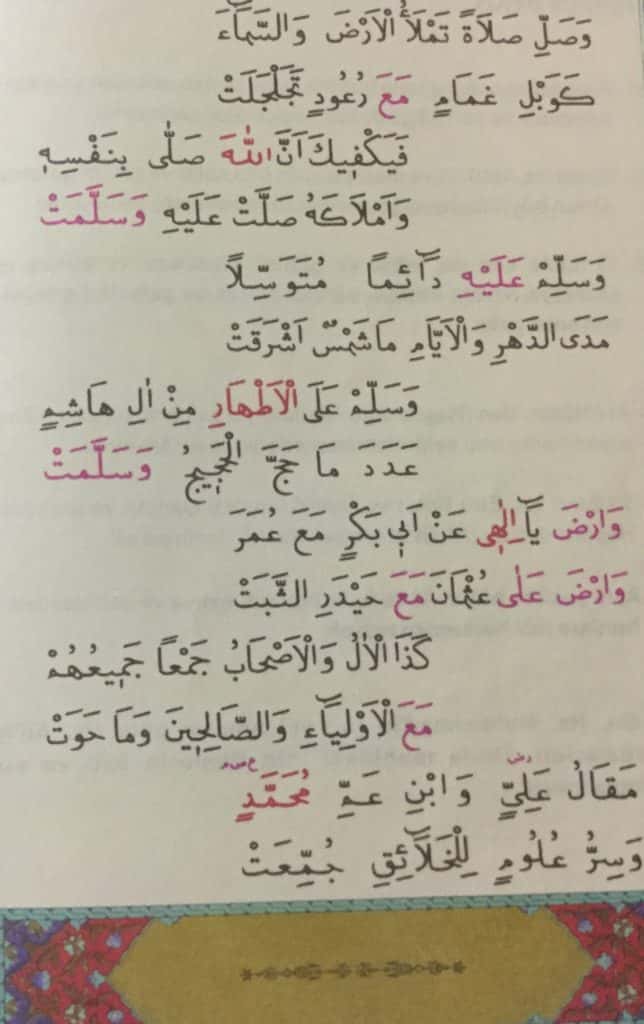 وَصَلِّ صَلَاةً تَمْلَأُ الْاَرْضَ وَالسَّمَٓاءَ
كَوَبْلِ غَمَامٍ مَعَ رُعُودٍ تَجَلْجَلَتْ
فَيَكْفِيكَ اَنَّ اللّٰهَ صَلّٰى بِنَفْسِهٖ
وَاَمْلَاكَهُ صَلَّتْ عَلَيْهِ وَسَلَّمَتْ
وَسَلِّمْ عَلَيْهِ دَٓائِمًا مُتَوَسِّلًا
مَدَى الدَّهْرِ وَالْاَيَّامِ مَاشَمْسٌ اَشْرَقَتْ
وَسَلِّمْ عَلَى الْاَطْهَارِ مِنْ اٰلِ هَاشِمٍ
عدد مَا حَجَّ الْحَجِيجُ وَسَلَّمَتْ
وَارْضَ يَٓا اِلٰهِى عَنْ اَبِى بَكْرٍ مَعَ عُمَرَ
وَارْضَ عَلٰى عُثْمَانَ مَعَ حَيْدَرِ الثَّبَتْ
كَذَا الْاٰلُ وَالْاَصْحَابُ جَمْعًا جَمِيعُهُمْ
مَعَ الْاَوْلِيَٓاءِ وَالصَّالِحِينَ وَمَا حَوَتْ
مَقَالُ عَلِيٍّ وَابْنِ عَمِّ مُحَمَّدٍ
وَسِرُّ عُلُومٍ لِلْخَلَٓائِقِ جُمِّعَتْ